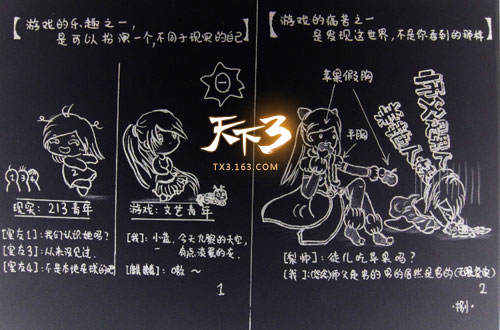 【游戏的乐趣之一,
是可以扮演一个,不同于现实的自己】
现实: 213青年
[室友1]:我们认识她吗?
[室友3]:从来没见过.
[室友4]:不是本地星球的吧
日
游戏: 文艺青年
[我]: 小蓝,今天九黎的天空,
有点淡裳的灰.
[麒麟]: 嗷~
1
天下3
TX3.163.COM
【游戏的痛苦之一
是发现这世界,不是你看到的那样】
苹果假胸
平胸
师父是男人
[渠师]: 徒儿吃苹果吗?
师父是男的男的居然是男的
2
·捌·